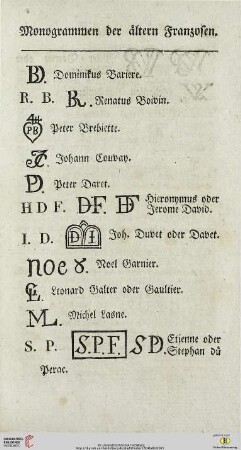 Monogrammen der ältern Franzosen.
BD. Dominikus Bariere.
R. B. R. Renatus Boivin.
PB Peter Brebiette.
JC. Johann Couvay.
PD. Peter Daret.
H D F. DF. HF Hieronymus oder
Jerome David.
I. D. D I Joh. Duvet oder Davet.
noe 8. Noel Garnier.
LG. Leonard Galter oder Gaultier.
ML. Michel Lasne.
S. P. S.P.F. SD. Etienne oder
Stephan dü
Perac.